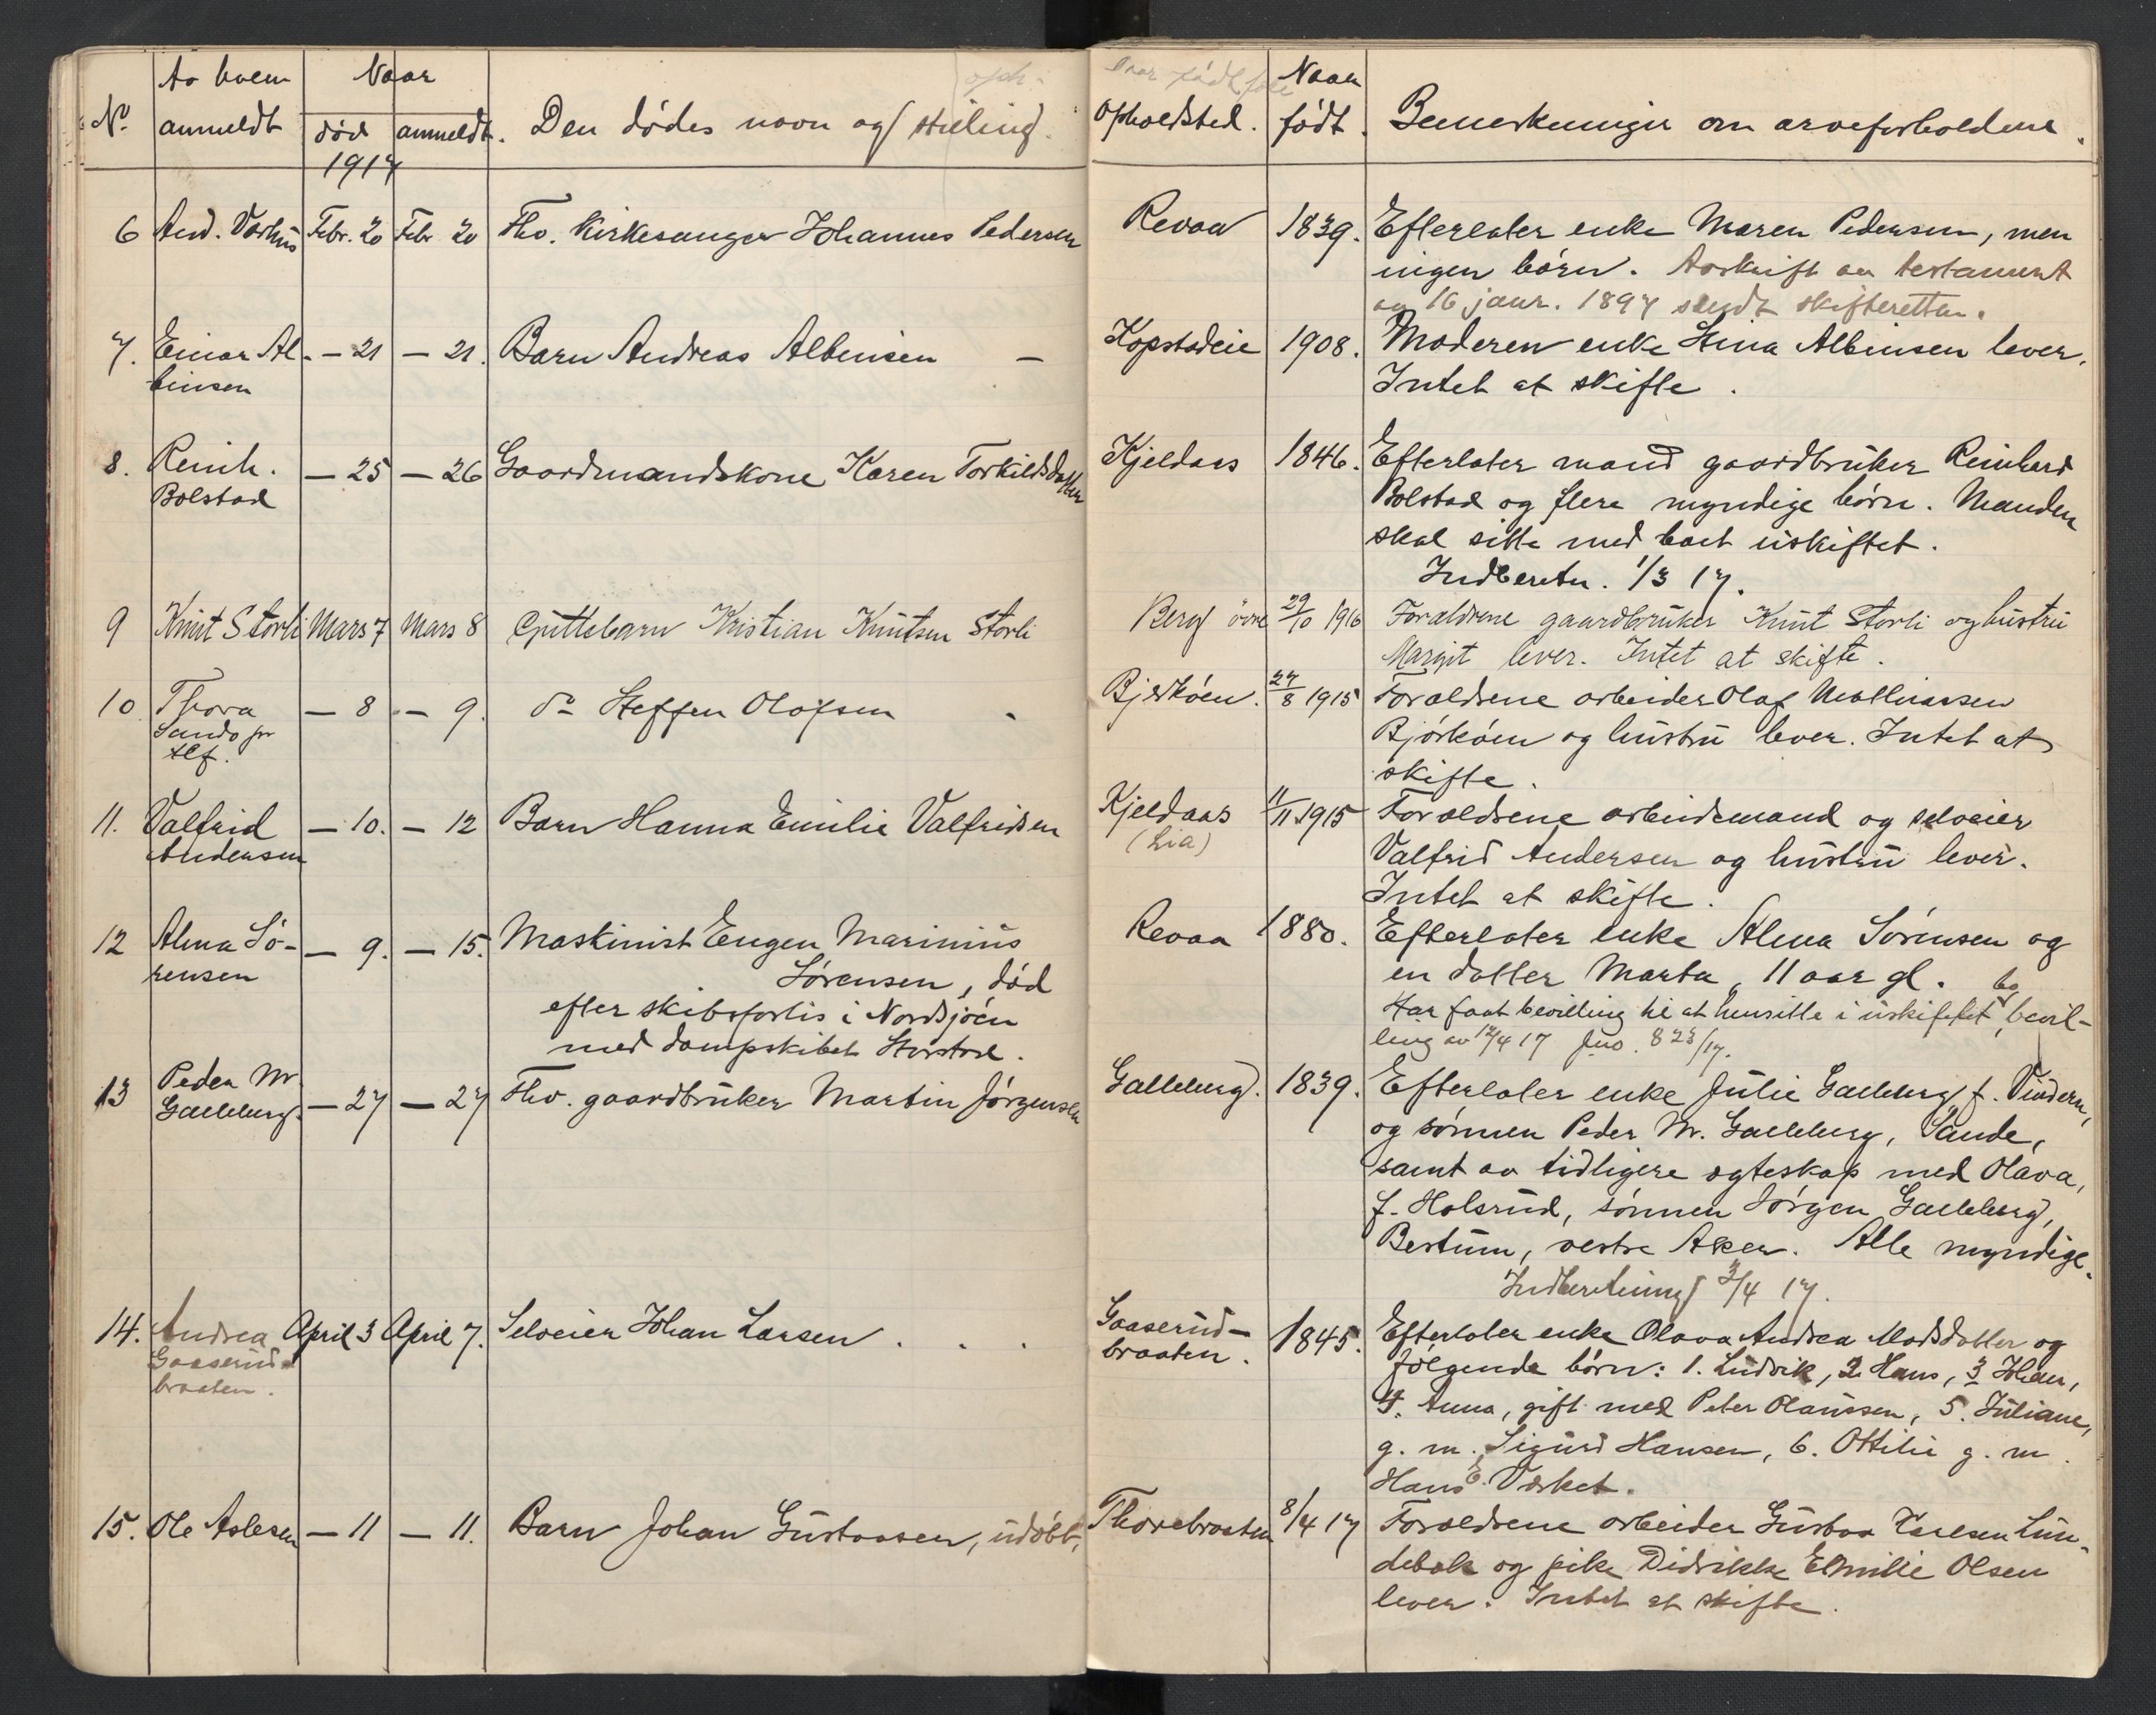 No. Av hvem anmeldt Naar død anmeldt. Den dødes navn og stilling. Opholdsted. Naar født. Bemerkninger om arveforholdene.
1917
6 And. Febr. 20 Febr 20 Fhv. Kirkesanger Johannes Pedersen Revaa 1839. Efterlater enke Maren Pedersen, men
ingen børn. Avskrift av testament
av 16 janr. 1897 sendt skifteretten.
7. Einar Al- — 21 — 21. Barn Andreas Albinsen — Kopstadeie 1908. Moderen enke Stina Albinsen lever.
binsen Intet at skifte.
8. Reinh. — 25 — 26 Gaardmandskone Karen Torkildsdatter Kjeldaas 1846. Efterlater mand gaardbruker Reinhard
Bolstad Bolstad og flere myndige børn. Manden
skal sitte med boet uskiftet.
Indberetn. 1/3 17.
9 Knut Storli Mars 7 Mars 8 Guttebarn Kristian Knutsen Storli Berg övre 29/10 1916 Forældrene gaardbruker Knut Storli og hustru
Margit lever. Intet at skifte.
10 Thora — 8 — 9. do Steffen Olafsen - Bjerkøen. 27/8 1915 Forældrene arbeider Olaf Mathiassen
Sando pr Bjørkøen og hustru lever. Intet at
tlf. skifte.
11. Valfrid — 10. — 12 Barn Hanna Emilie Valfridsen Kjeldaas 11/11 1915 Forældrene arbeidsmand og selveier
Andersen (Lia) Valfrid Andersen og hustru lever.
Intet at skifte.
12 Alma Sø- — 9. — 15. Maskinist Eugen Marinius Revaa 1880. Efterlater enke Alma Sørensen og
rensen Sørensen, død en datter Marta, 11 aar gl.
efter skibsforlis i Nordsjøen Har faat bevilling til at hensitte i uskiftet bo, bevil-
med dampskibet Storstad. ling av 12/4 17 Jno. 823/17.
13 Peder M. — 27 — 27 Fhv. gaardbruker Martin Jørgensen Galleberg. 1839. Efterlater enke Julie Galleberg f. Vindern,
Galleberg. og sønnen Peder M. Galleberg, Sande,
samt av tidligere egteskap med Olava,
f. Holsrud, sønnen Jørgen Galleberg,
Bestum, vestre Aker. Alle myndige.
Indberetning 3/4 17.
14. Andrea April 3 April 7. Selveier Johan Larsen . . . Gaaserud- 1845. Efterlater enke Olava Andrea Madsdatter og
Gaaserud- braaten. følgende børn: 1. Ludvik, 2. Hans, 3 Johan,
braaten. 4. Anna, gift med Peter Olaussen, 5. Juliane,
g. m. Sigurd Hansen, 6. Ottilie g. m.
Hans E. Værket.
15. Ole Aslesen — 11 — 11. Barn Johan Gustavsen, udøbt, Thorebraaten 8/4 17 Forældrene arbeider Gustav Karlsen Lun-
debak og pike Didrikke Emilie Olsen
lever. Intet at skifte.